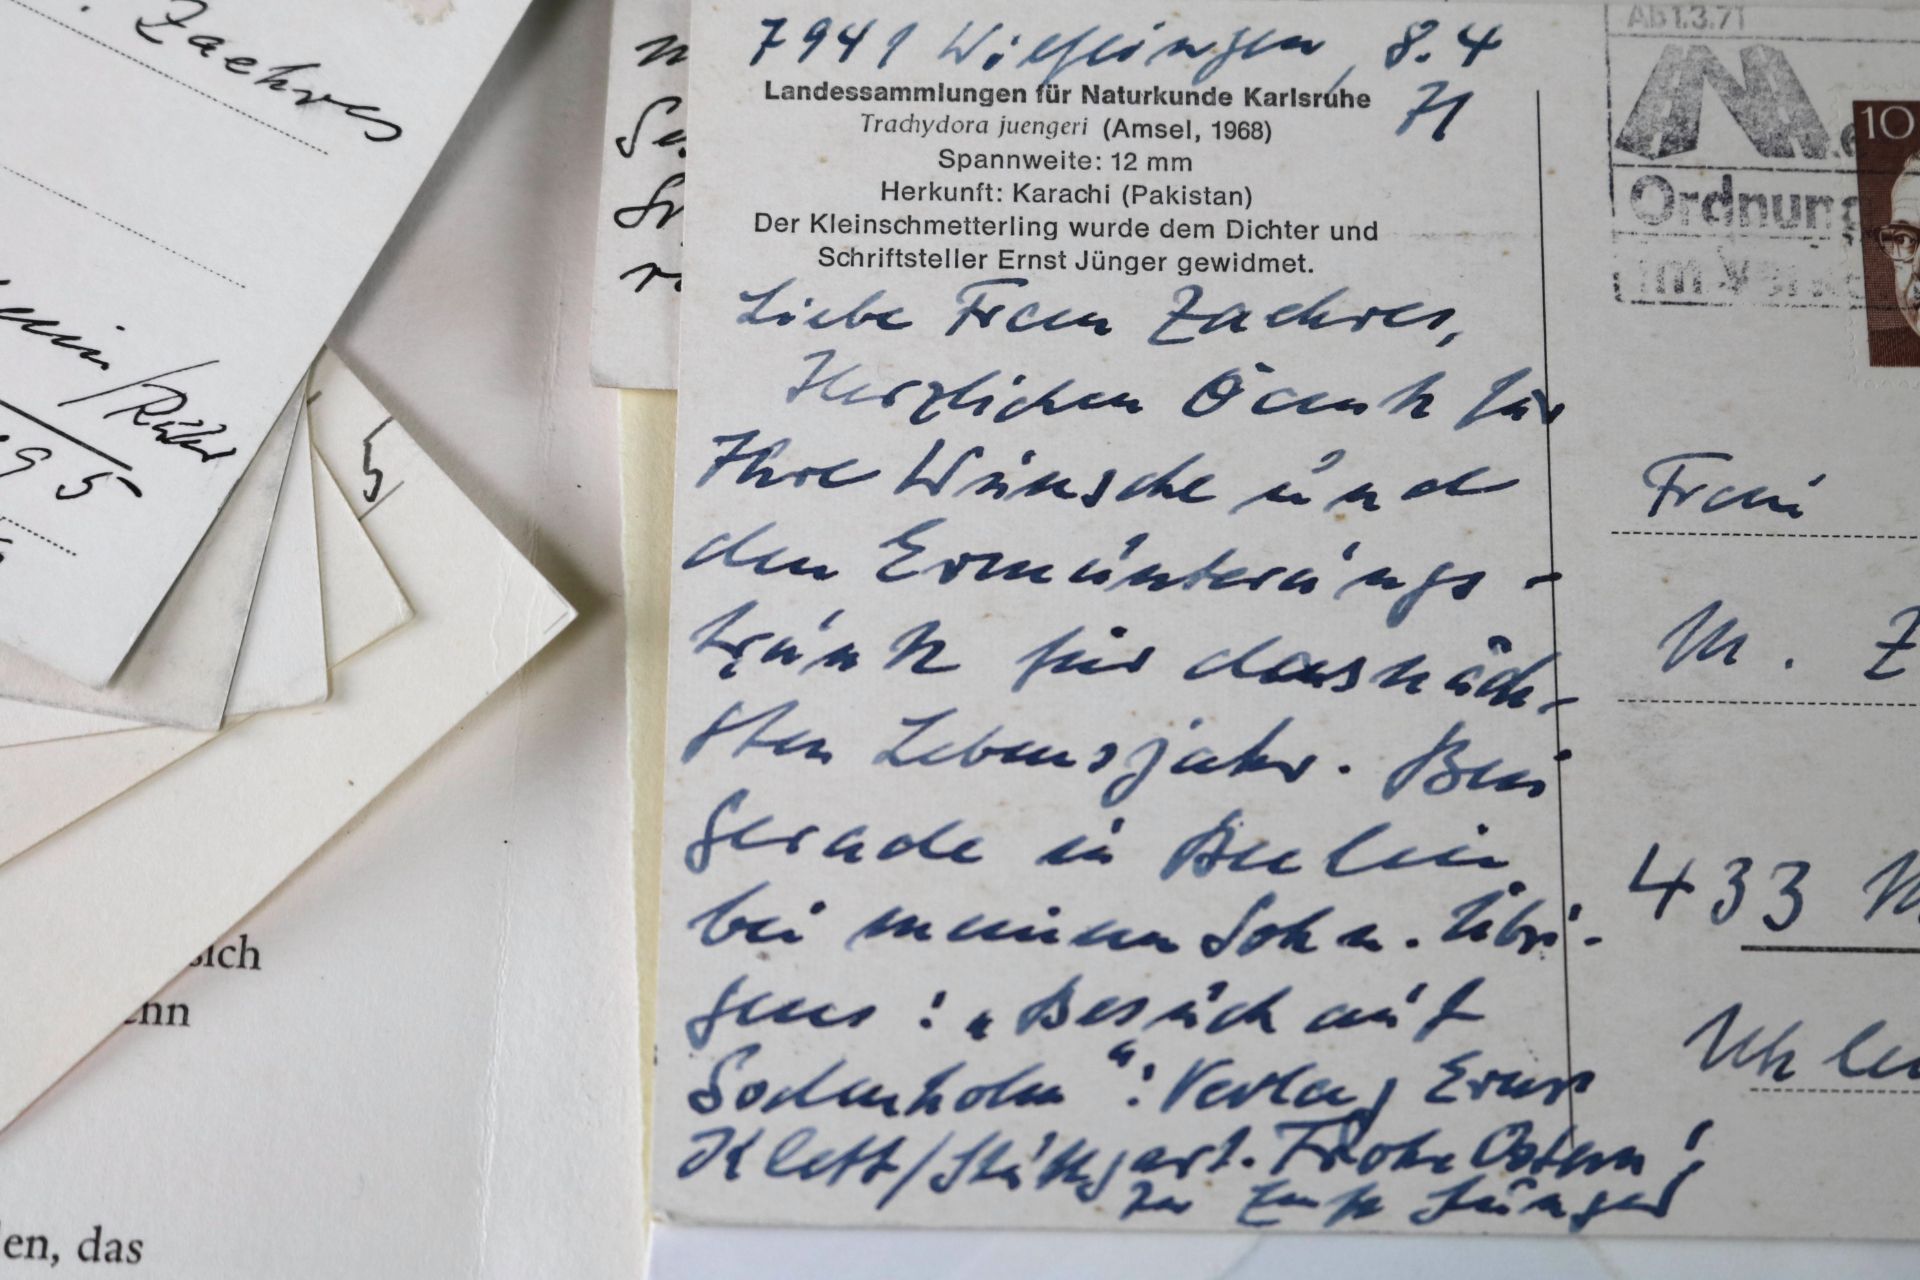 Zaehres
/Rühr
195
5
sich
enn
en, das
7941 Wilflingen, 8.4
71
Landessammlungen für Naturkunde Karlsruhe
Trachydora juengeri (Amsel, 1968)
Spannweite: 12 mm
Herkunft: Karachi (Pakistan)
Der Kleinschmetterling wurde dem Dichter und
Schriftsteller Ernst Jünger gewidmet.
Liebe Frau Zaehres,
Herzlichen Dank für
Ihre Wünsche und
den Ermunterungs-
trunk für das näch-
sten Lebensjahr. Bin
gerade in Berlin
bei meinem Sohn. Übri-
gens: „Besuch auf
Godenholm“: Verlag Ernst
Klett/Stuttgart. Frohe Ostern!
Ihr Ernst Jünger
Ab 1.3.71
Ordnung
im Verke
10
Frau
M. Z
433 M